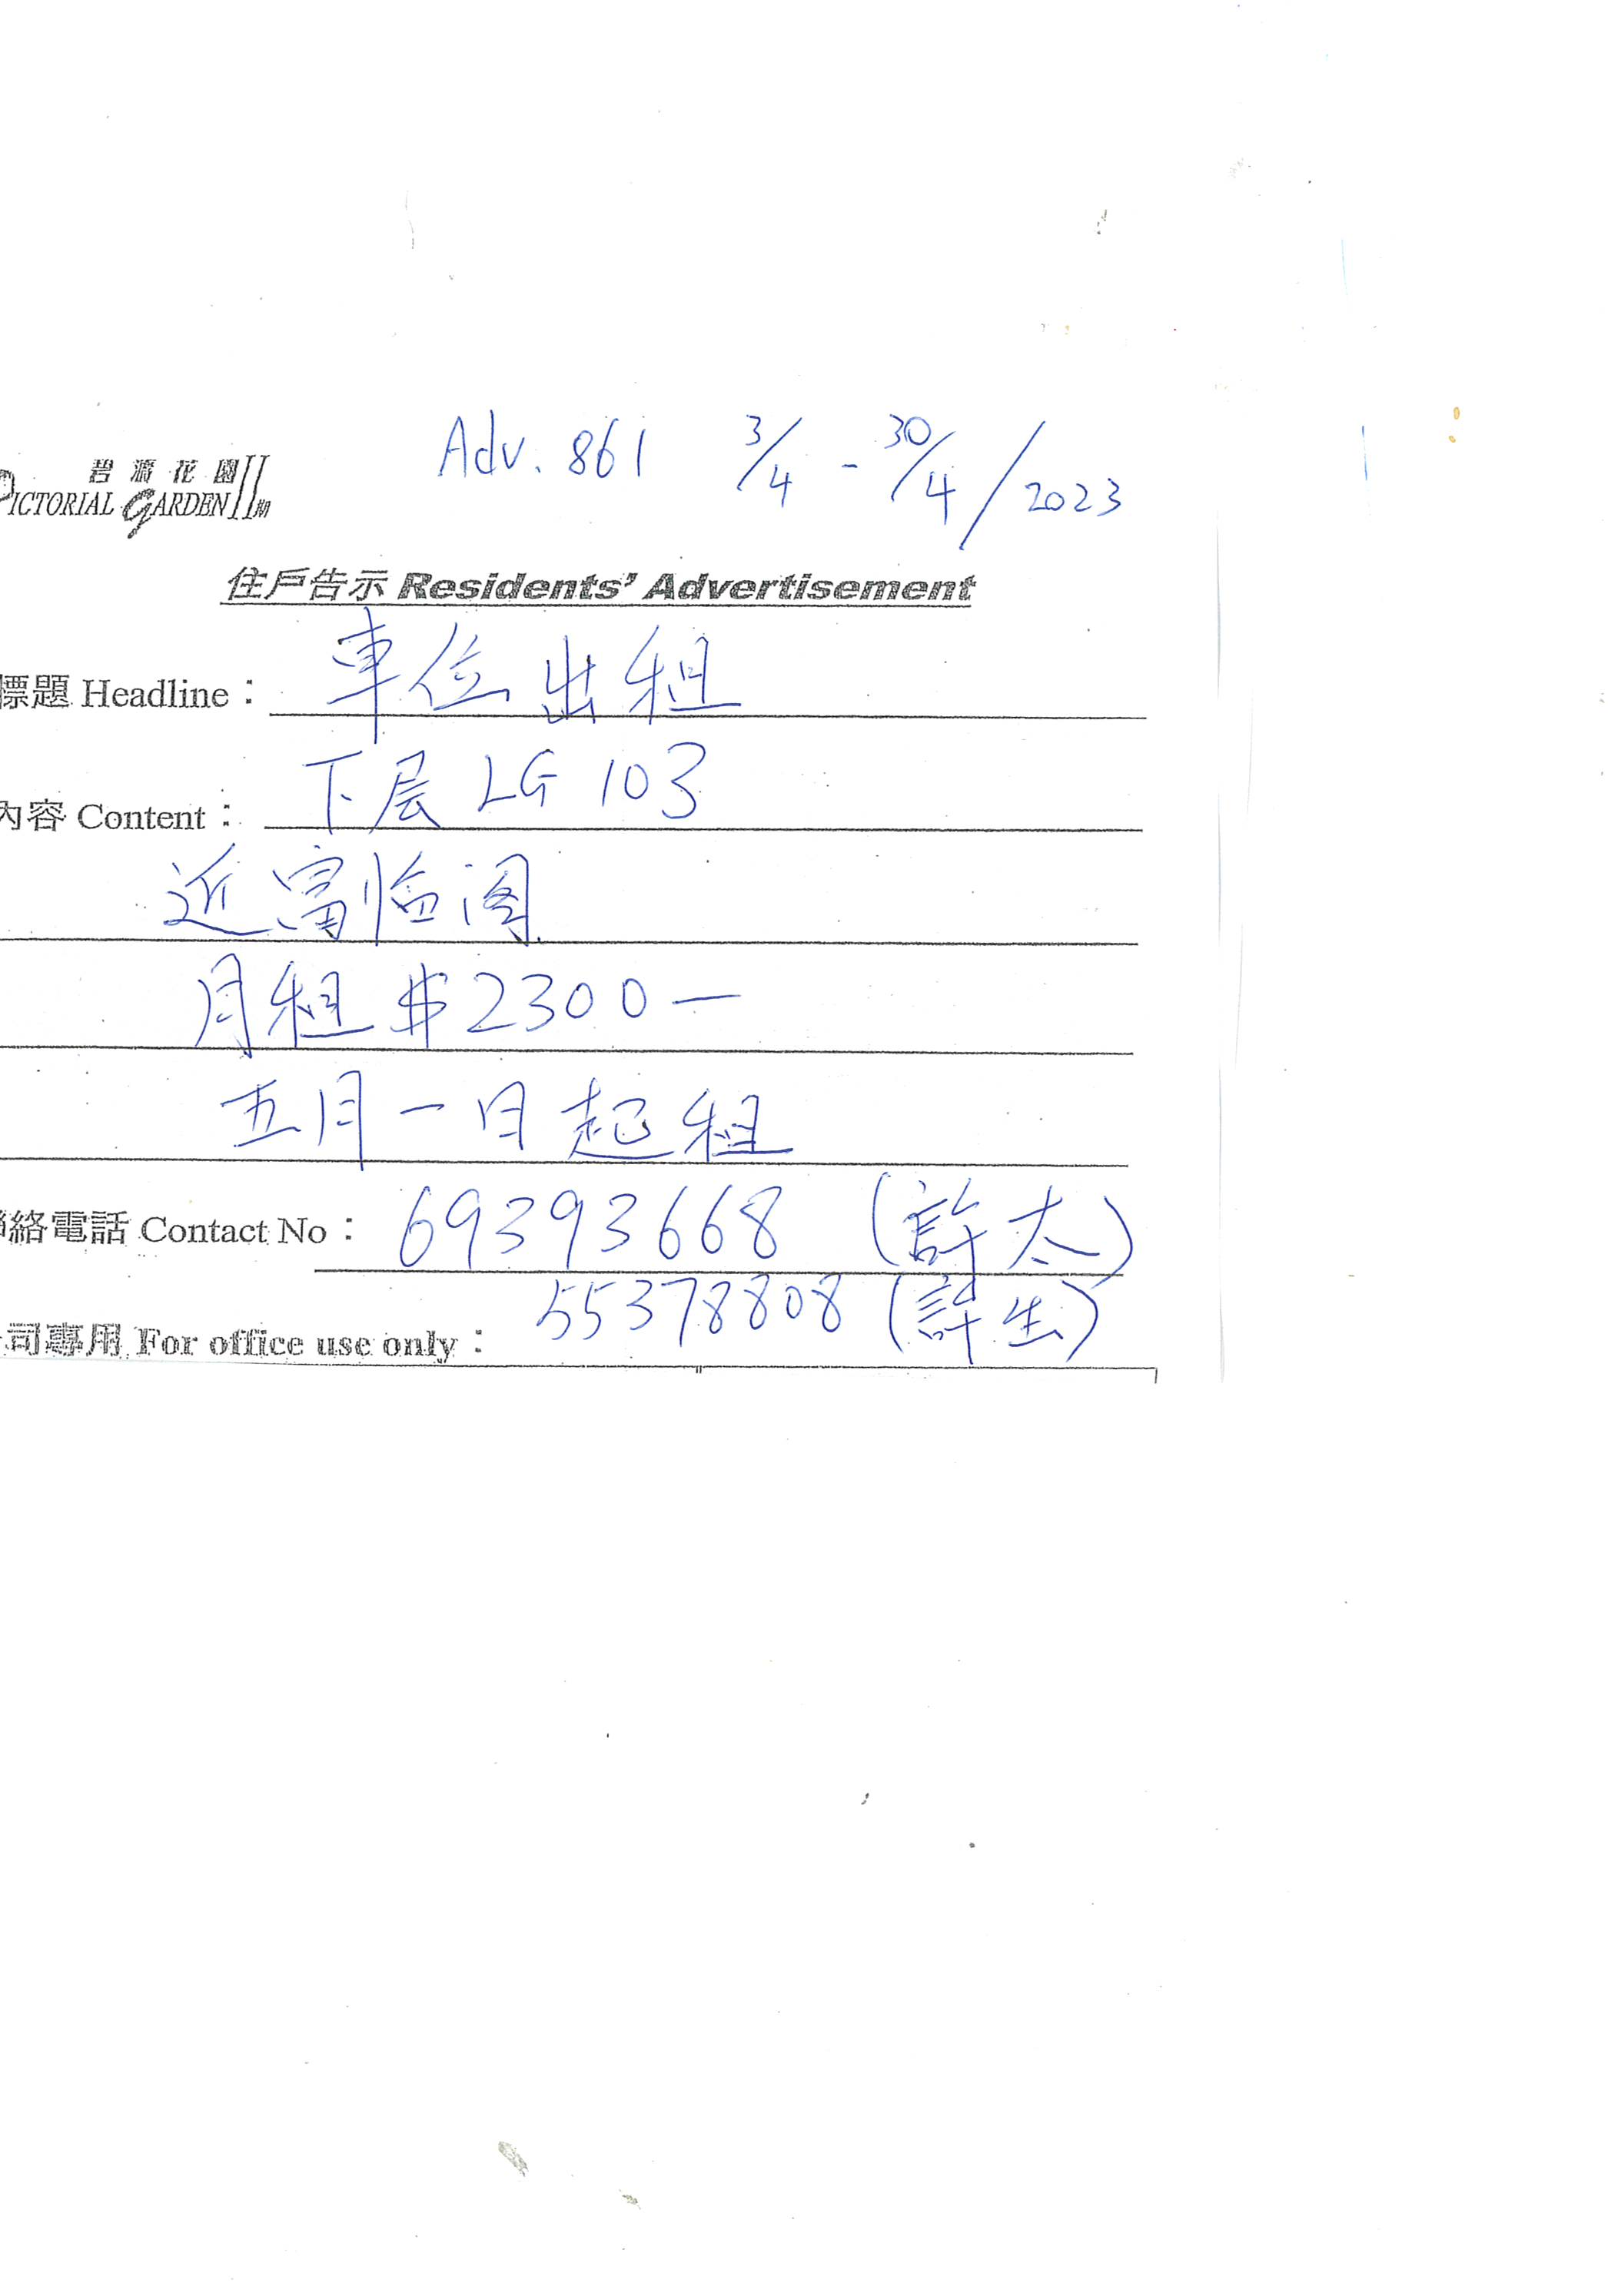 Adv. 861 3/4 - 30/4/2023
碧濤花園 II期
PICTORIAL GARDEN
住戶告示 Residents' Advertisement
標題 Headline： 車位出租
內容 Content： 下层 LG 103
近富临阁
月租 $2300一
五月一日起租
聯絡電話 Contact No： 69393668 (許太)
55378808 (許生)
司專用 For office use only：